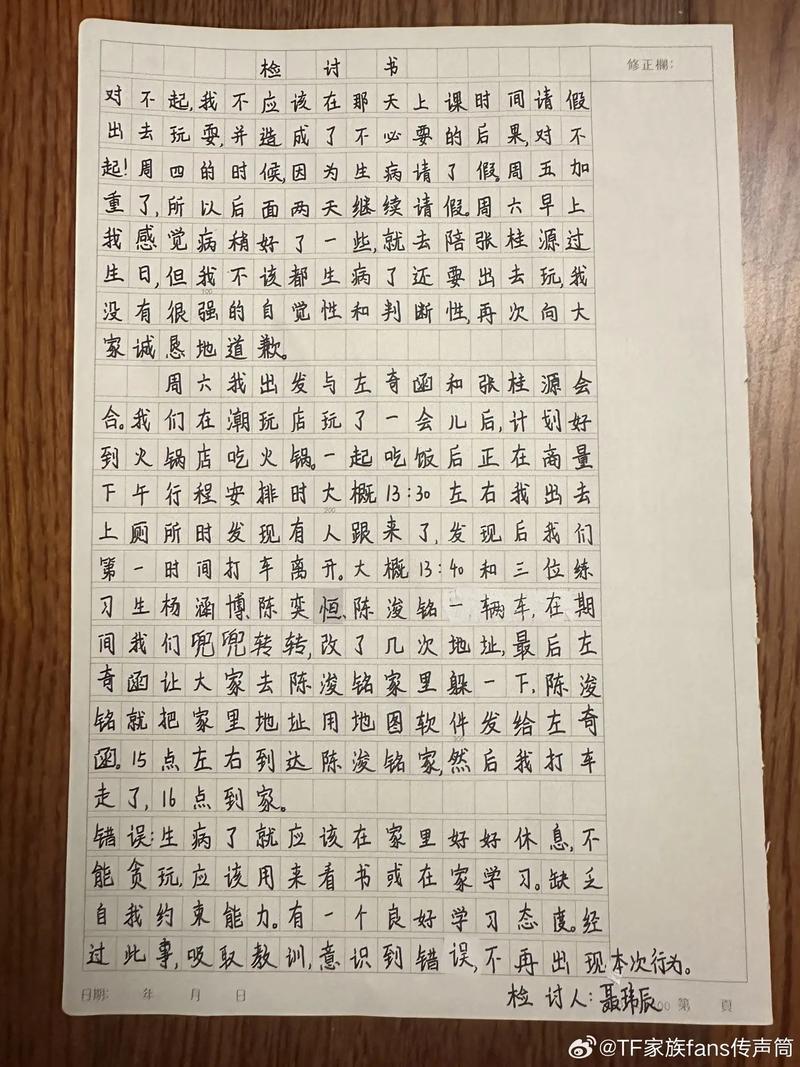 检讨书
修正欄：
对不起，我不应该在那天上课时间请假
出去玩耍，并造成了不必要的后果，对不
起！周四的时候，因为生病请了假。周五加
重了，所以后面两天继续请假。周六早上
我感觉病稍好了一些，就去陪张桂源过
生日，但我不该都生病了还要出去玩，我
100
没有很强的自觉性和判断性，再次向大
家诚恳地道歉。
周六我出发与左奇函和张桂源会
合。我们在潮玩店玩了一会儿后，计划好
到火锅店吃火锅。一起吃饭后正在商量
下午行程安排时大概13:30左右我出去
200
上厕所时发现有人跟来了，发现后我们
第一时间打车离开。大概13:40和三位练
习生杨涵博、陈奕恒、陈浚铭一辆车，在期
间我们兜兜转转，改了几次地址，最后左
奇函让大家去陈浚铭家里躲一下，陈浚
铭就把家里地址用地图软件发给左奇
300
函。15点左右到达陈浚铭家，然后我打车
走了，16点到家。
错误：生病了就应该在家里好好休息，不
能贪玩，应该用来看书或在家学习。缺乏
自我约束能力。有一个良好学习态度。经
过此事，吸取教训，意识到错误，不再出现本次行为。
检讨人：聂玮辰
日期： 年 月 日 第 頁
@TF家族fans传声筒